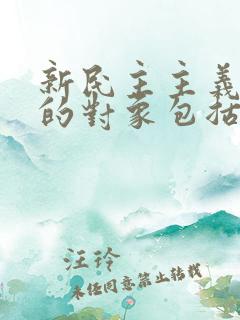 新民主主義
的對象包括
汪玲
未经同意禁止转载